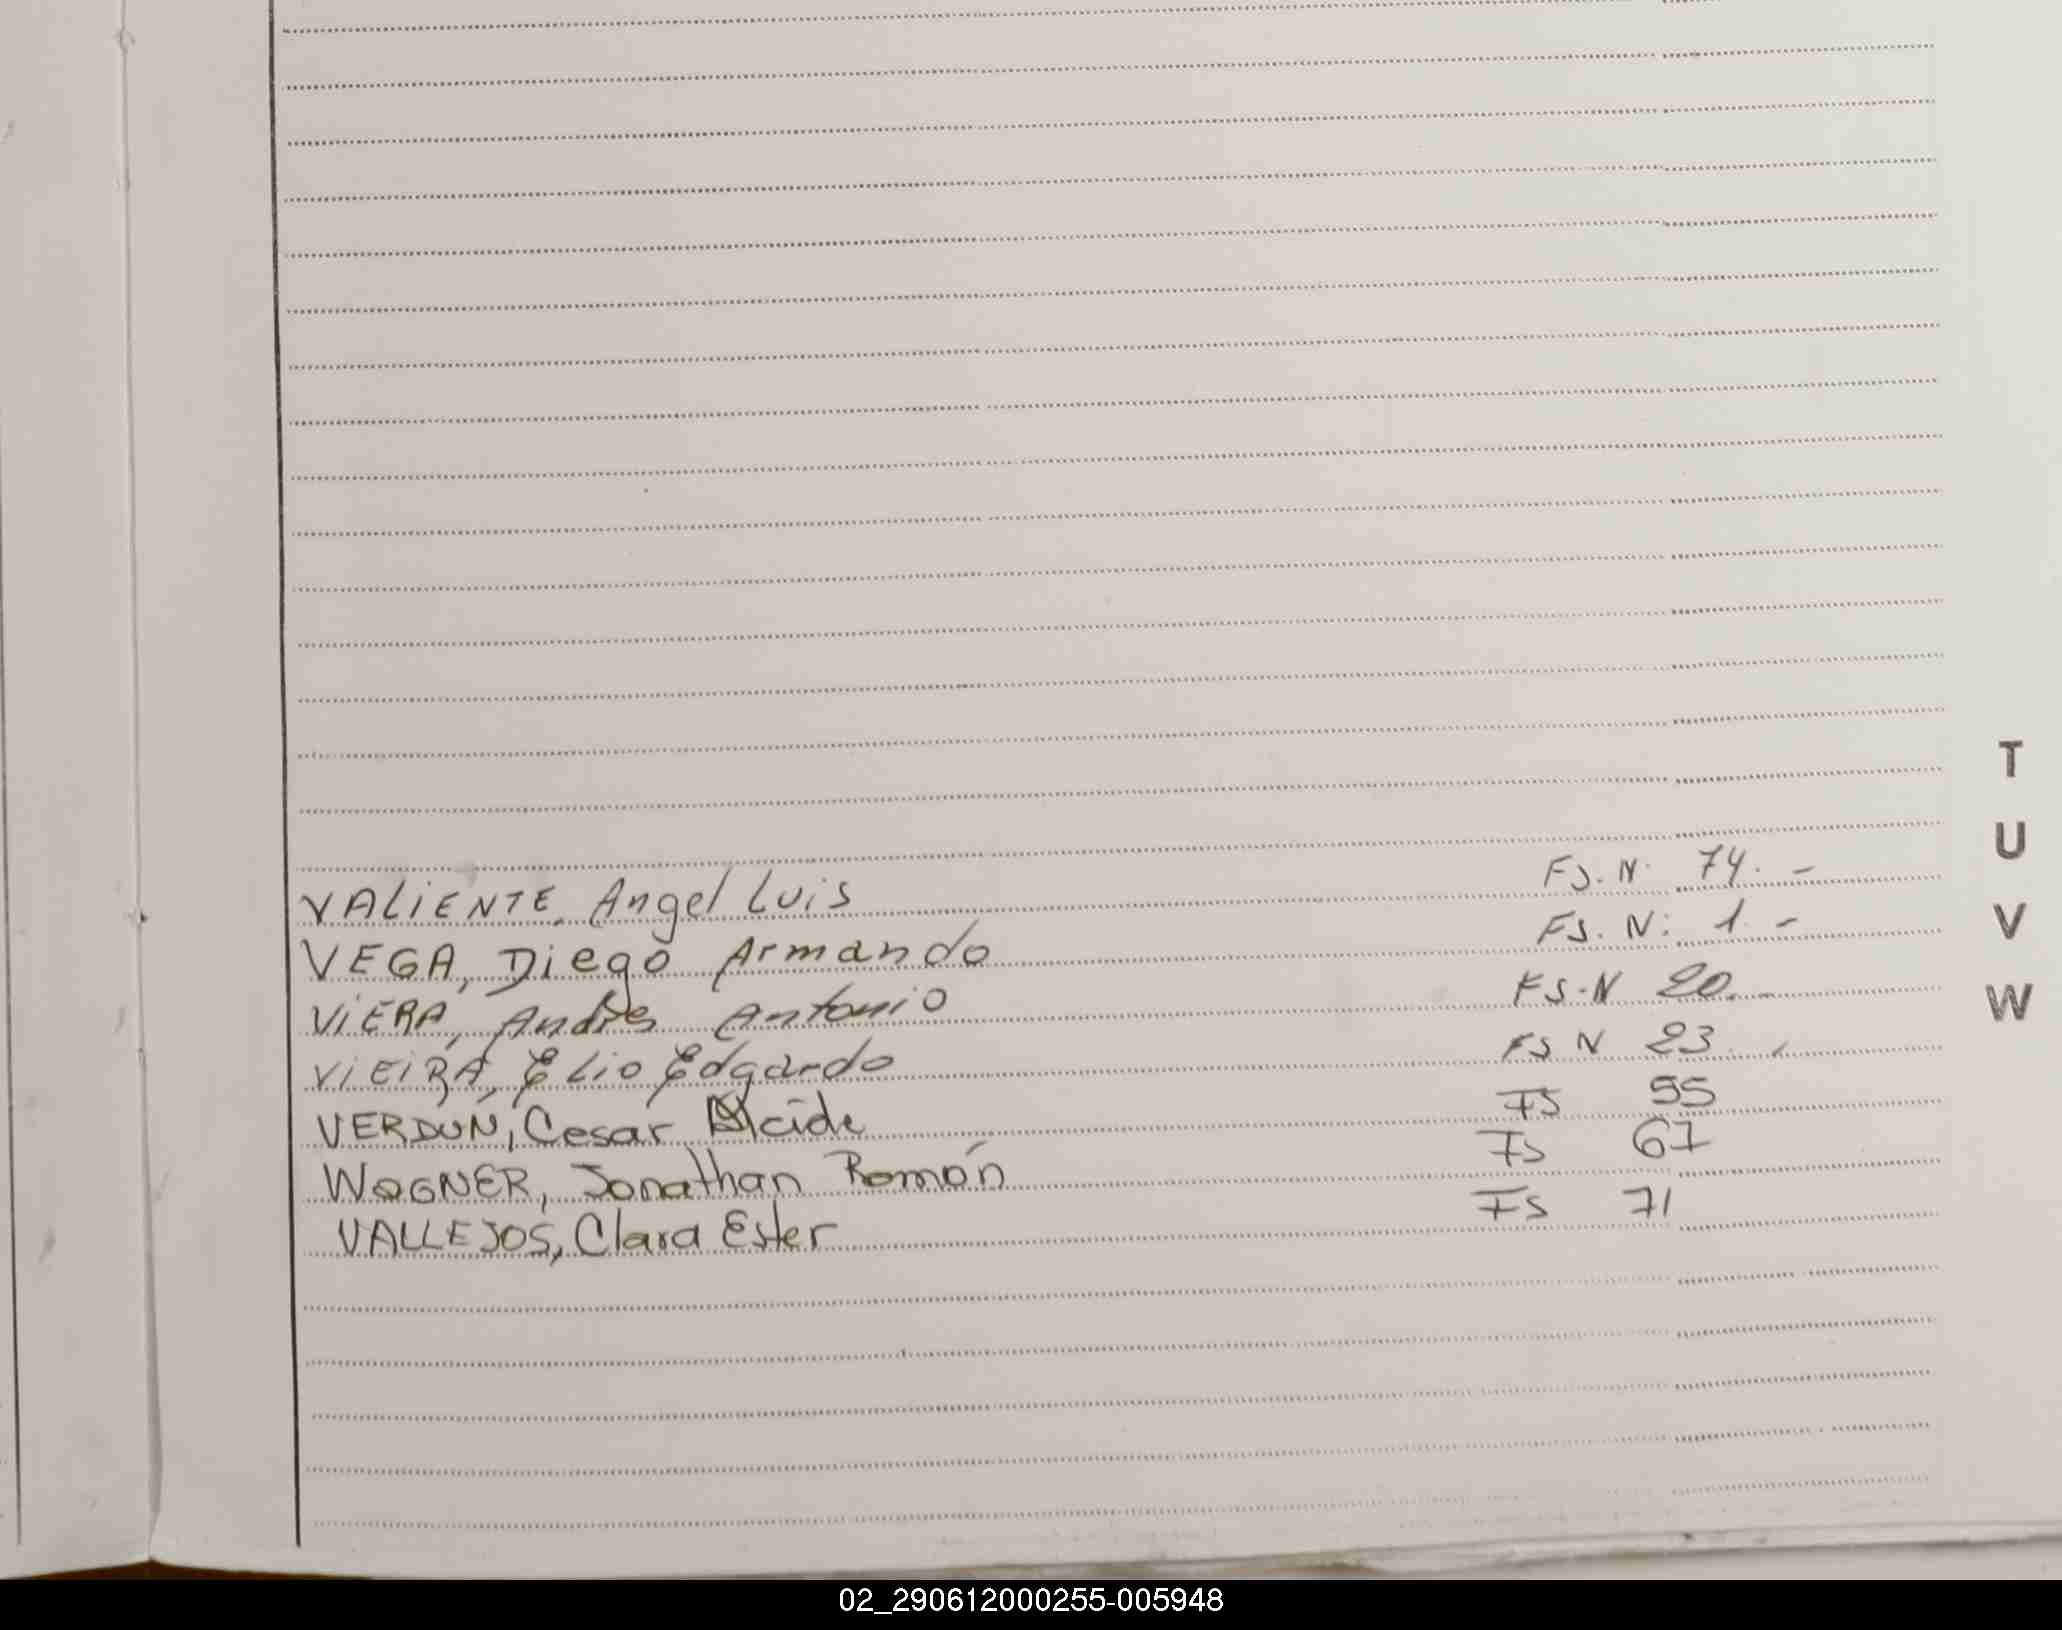 VALIENTE, Angel Luis FS. N. 74. -
VEGA, Diego Armando FS. N: 1. -
VIERA, Andrés Antonio FS. N 20. -
VIEIRA, Elio Edgardo FS N 23.
VERDUN, Cesar Alcide FS 55
WAGNER, Jonathan Román FS 67
VALLEJOS, Clara Ester FS 71
T
U
V
W
02_290612000255-005948